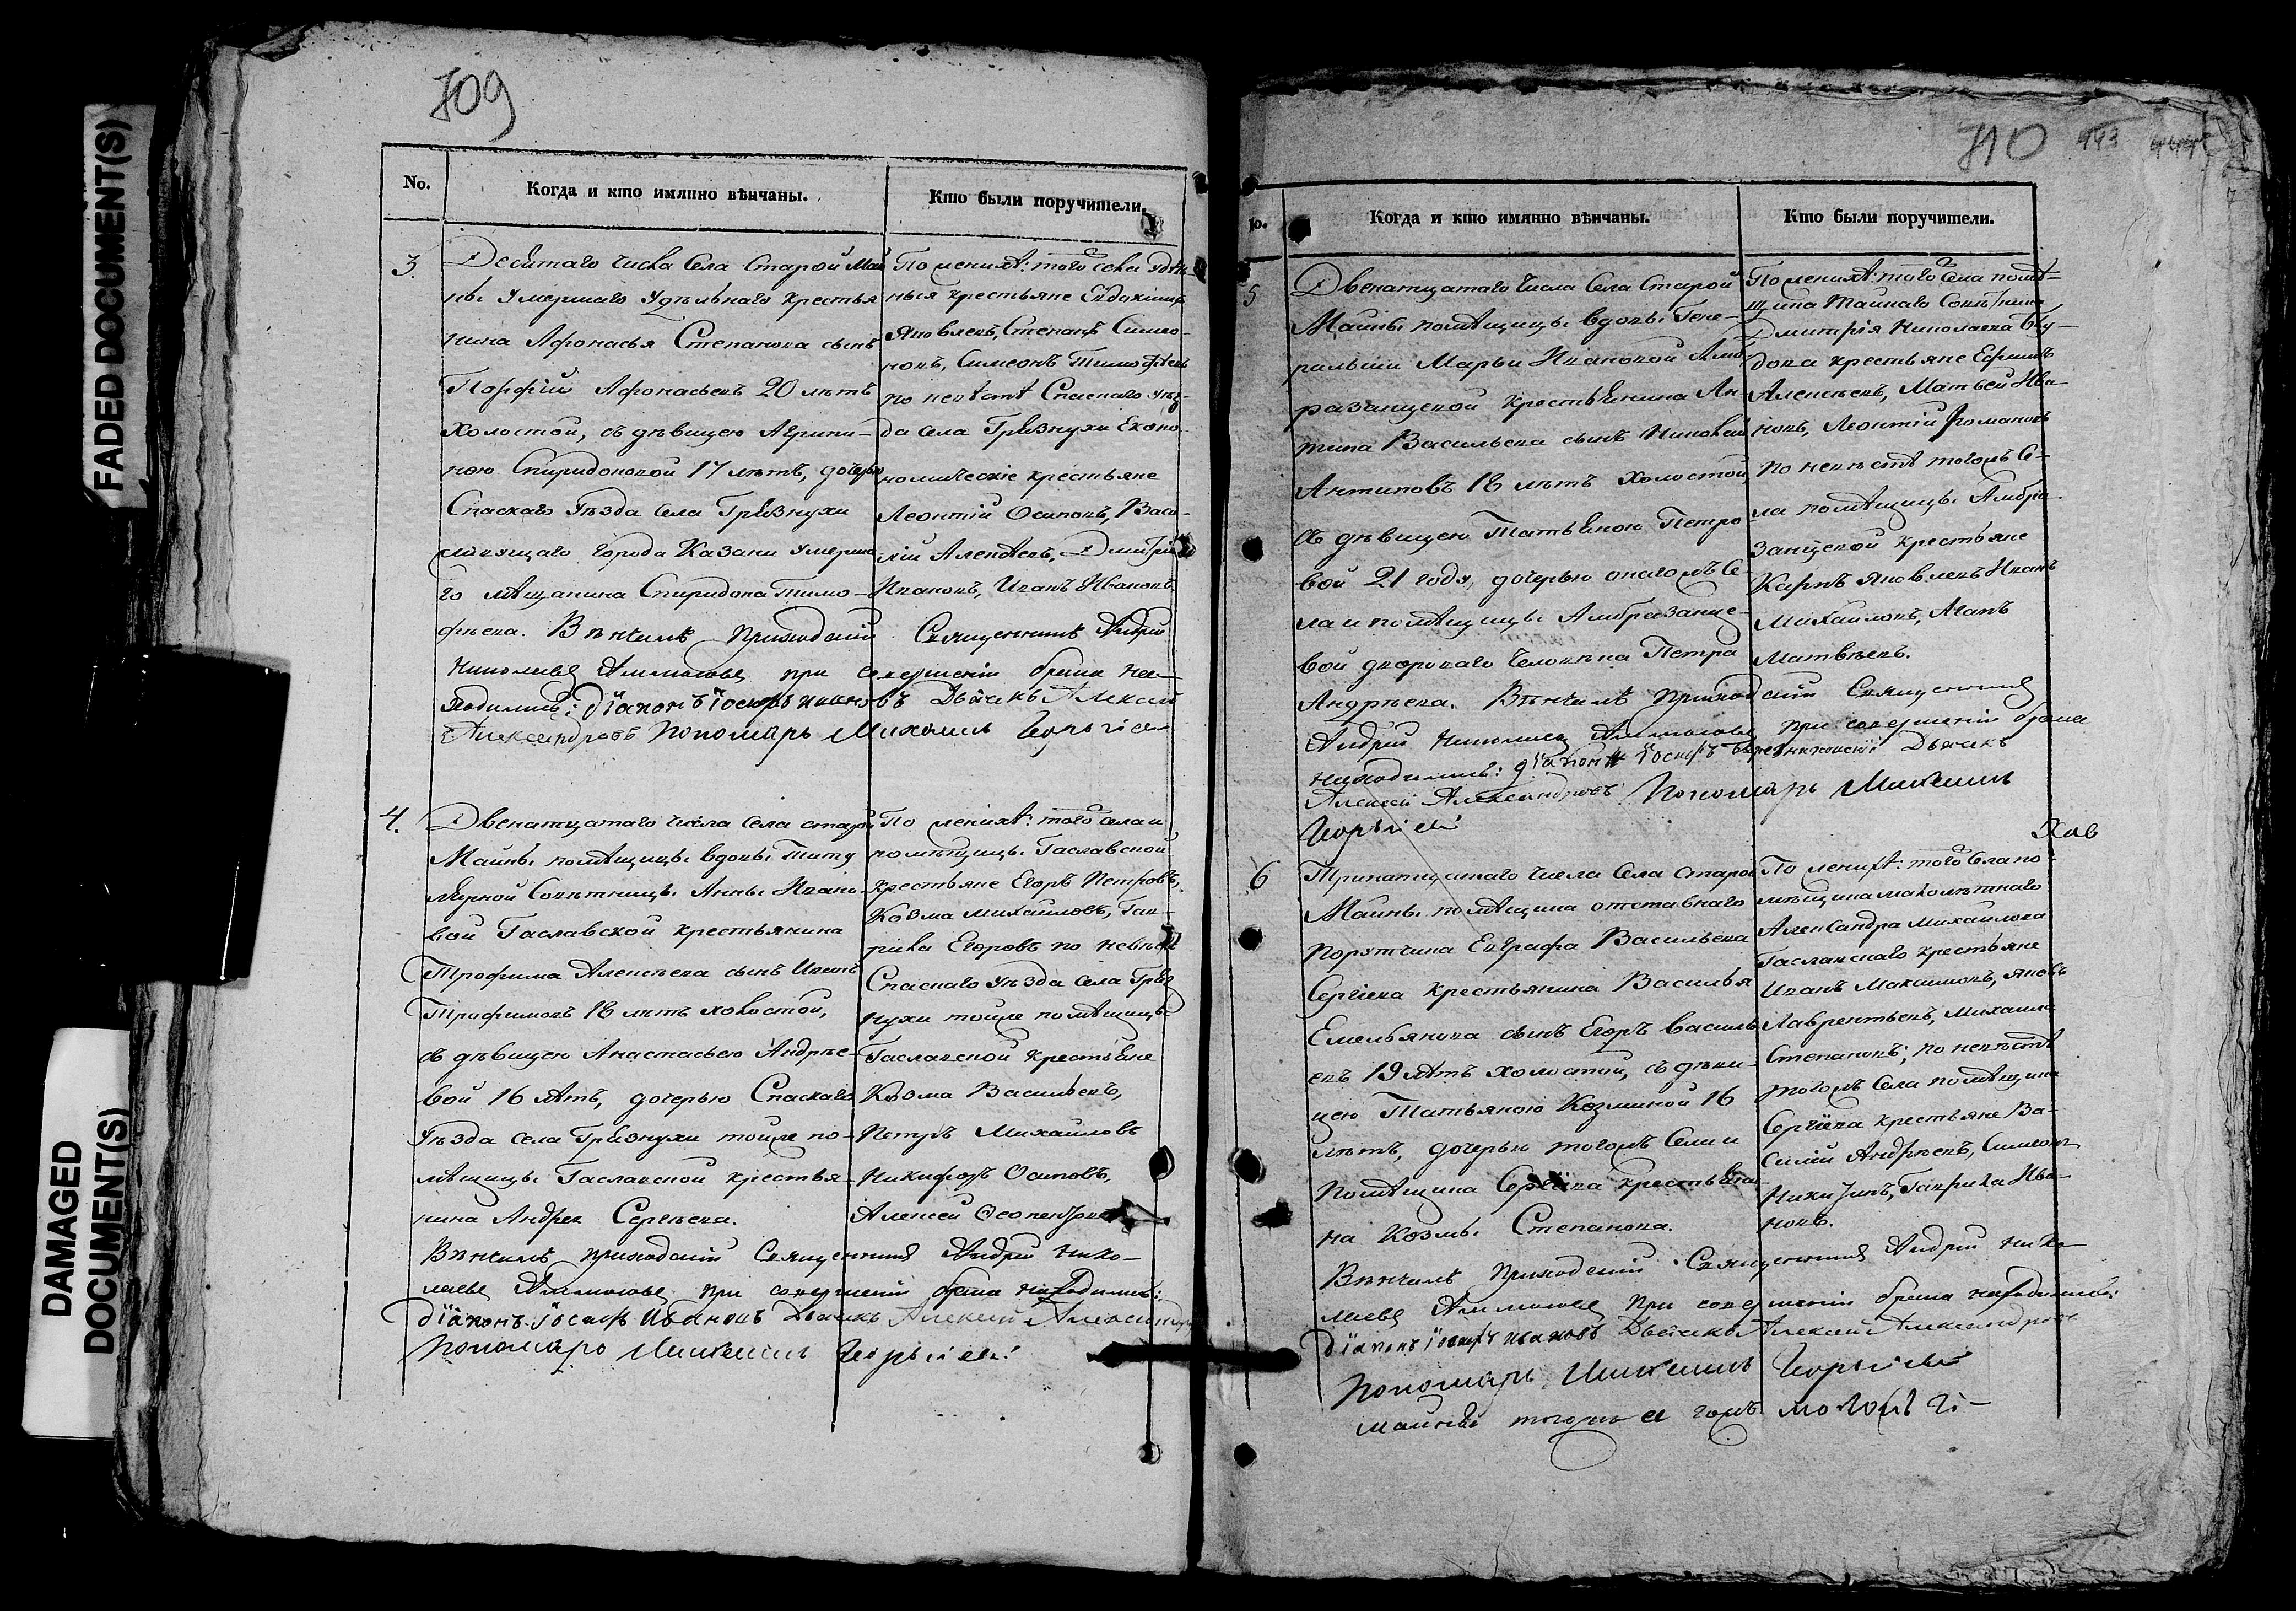 FADED DOCUMENT(S)
DAMAGED
DOCUMENT(S)
709
No.
Когда и кто имянно вѣнчаны.
Кто были поручители.
3.
Десятаго числа Села Старой Май
ны умершаго удѣльнаго крестья
нина Афонасья Степанова сынъ
Порфій Афонасьевъ 20 лѣтъ
холостой, съ дѣвицею Агрипи-
ною Спиридоновой 17 лѣтъ, дочерью
Спаскаго уѣзда села Грязнухи
города Казани умерша
го мѣщанина Спиридона Тимо-
фѣева. Вѣнчалъ приходскій Священникъ Андрей
Николаевъ при совершеніи брака на-
ходились: діаконъ іосифъ ивановъ Дьячекъ Алексей
Александровъ Пономарь Михаилъ
По женихѣ: того села удѣль-
ныя крестьяне Евдокимъ
Яковлевъ, Степанъ Симео-
новъ, Симеонъ Тимофѣевъ
по невѣстѣ Спаскаго уѣз-
да села Грязнухи Еконо-
номическіе крестьяне
Леонтій Осиповъ, Васи-
лій Алексѣевъ, Дмитрій
Ивановъ, Иванъ Ивановъ.
4.
Двенатцатаго числа села старой
Майны помѣщицы вдовы Титу
лярной Совѣтницы Анны Ивано
вой Гославской крестьянина
Трофима Алексѣева сынъ Иванъ
Трофимовъ 18 лѣтъ холостой,
съ дѣвицею Анастасьею Андрѣе-
вой 16 лѣтъ, дочерью Спаскаго
Уѣзда села Грязнухи тойже по-
мѣщицы Гославской крестья-
нина Андрея Сергѣева.
Вѣнчалъ приходскій Священникъ Андрей Нико-
лаевъ при совершеніи брака находились:
діаконъ іосифъ Ивановъ Дьячекъ Алексей Александровъ
Пономарь Михаилъ
По женихѣ: того села и
помѣщицы Гославской
крестьяне Егоръ Петровъ,
Козма Михайловъ, Гав-
рила Егоровъ по невѣстѣ
Спаскаго уѣзда села Гряз
нухи тойже помѣщицы
Гославской крестьяне
Козма Васильевъ,
Петръ Михайловъ
Никифоръ Осиповъ,
Алексей
710 443
No.
Когда и кто имянно вѣнчаны.
Кто были поручители.
5
Двенатцатаго числа Села Старой
Майны помѣщицы вдовы Гене-
ральши Марьи Ивановой Амб
разанцевой крестьянина Ан
типа Васильева сынъ Николай
Антиповъ 18 лѣтъ холостой
съ дѣвицею Татьяною Петро
вой 21 года, дочерью тогожъ Се-
ла и помѣщицы Амбразанце-
вой двороваго человѣка Петра
Андрѣева. Вѣнчалъ приходскій Священникъ
Андрей Николаевъ при совершеніи брака
находились: діаконъ іосифъ Дьячекъ
Алексей Александровъ Пономарь Михаилъ
По женихѣ: того Села помѣ-
щика Тайнаго Совѣтника
Дмитрія Николаева Блу-
дова крестьяне Ефимъ
Алексѣевъ, Матвей Ива-
новъ, Леонтій Романовъ
по невѣстѣ тогожъ Се-
ла помѣщицы Амбра-
занцевой крестьяне
Карпъ Яковлевъ Иванъ
Михайловъ,
Матвѣевъ.
6
Тринатцатаго числа Села старой
Майны помѣщика отставнаго
Порутчика Евграфа Васильева
Сергіева крестьянина Василья
Емельянова сынъ Егоръ Василь
евъ 19 лѣтъ холостой, съ дѣви-
цею Татьяною Козминой 16
лѣтъ, дочерью тогожъ Села и
Помѣщика Сергіева крестьяни-
на Козмы Степанова.
Вѣнчалъ приходскій Священникъ Андрей Нико
лаевъ при совершеніи брака находились:
діаконъ іосифъ ивановъ Дьячекъ Алексей Александровъ
Пономарь Михаилъ
По женихѣ: того Села по-
мѣщика малолѣтнаго
Александра Михайлова
Гославскаго крестьяне
Иванъ Максимовъ, Яковъ
Лаврентьевъ, Михаила
Степановъ; по невѣстѣ
тогожъ Села помѣщика
Сергіева крестьяне Ва-
силій Андрѣевъ, Симеонъ
Никитинъ, Гаврила Ива-
новъ.